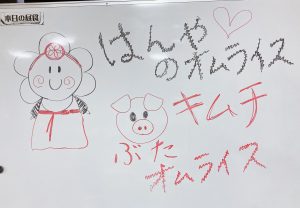 本日の昼食
はんや
のオムライス
キムチ
ぶた
オムライス